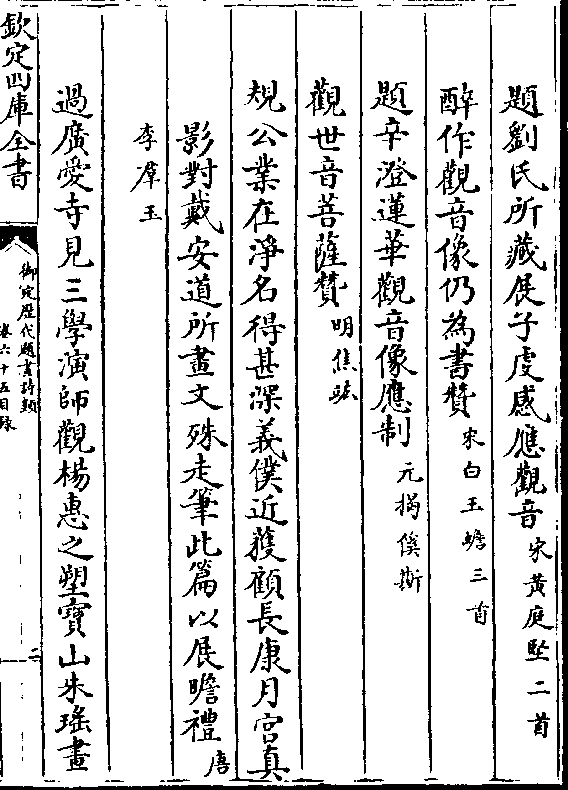 題劉氏所藏展子虔感應觀音宋黃庭堅二首
醉作觀音像仍為書贊宋白玉蟾三首
題辛澄蓮華觀音像應制元揭傒斯
觀世音菩薩贊明焦竑
規公業在淨名得甚深義僕近獲顧長康月宮真
影對戴安道所畫文殊走筆此篇以展瞻禮唐
李羣玉
過廣愛寺見三學演師觀楊惠之塑寶山朱瑤畫
欽定四庫全書
御定歴代題畫詩類
卷六十五目録
二